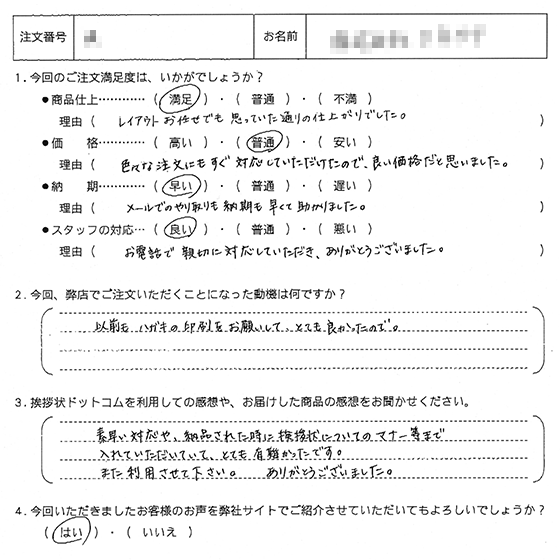 注文番号 お名前
1.今回のご注文満足度は、いかがでしょうか?
●商品仕上…………( 満足 )・( 普通 )・( 不満 )
理由( レイアウトお任せでも思っていた通りの仕上がりでした。 )
●価 格…………( 高い )・( 普通 )・( 安い )
理由( 色々な注文にもすぐ対応していただけたので、良い価格だと思いました。 )
●納 期…………( 早い )・( 普通 )・( 遅い )
理由( メールでのやり取りも納期も早くて助かりました。 )
●スタッフの対応…( 良い )・( 普通 )・( 悪い )
理由( お電話で親切に対応していただき、ありがとうございました。 )
2.今回、弊店でご注文いただくことになった動機は何ですか?
以前もハガキの印刷をお願いして、とても良かったので。
3.挨拶状ドットコムを利用しての感想や、お届けした商品の感想をお聞かせください。
素早い対応や、納品された時に挨拶状についてのマナー等まで
入れていただいていて、とても有難かったです。
また利用させて下さい。 ありがとうございました。
4.今回いただきましたお客様のお声を弊社サイトでご紹介させていただいてもよろしいでしょうか?
( はい )・( いいえ )